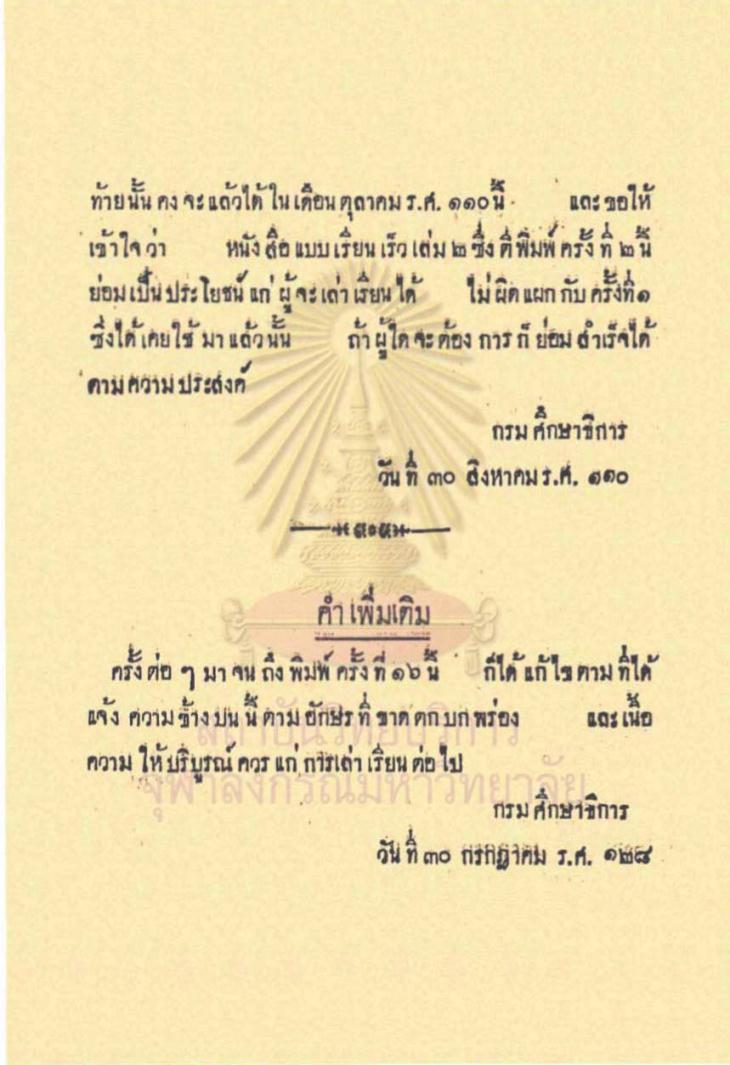 ท้ายนั้น คง จะ แล้วได้ ใน เดือน ตุลาคม ร.ศ. ๑๑๐ นี้ และ ขอให้
เข้าใจ ว่า หนัง สือ แบบ เรียน เร็ว เล่ม ๒ ซึ่ง ตีพิมพ์ ครั้ง ที่ ๒ นี้
ย่อม เป็น ประโยชน์ แก่ ผู้ จะ เล่า เรียน ได้ ไม่ ผิด แผก กับ ครั้งที่๑
ซึ่งได้ เคยใช้ มา แล้วนั้น ถ้า ผู้ใด จะ ต้อง การ ก็ ย่อม สำเร็จได้
ตาม ความ ประสงค์
กรม ศึกษาธิการ
วัน ที่ ๓๐ สิงหาคม ร.ศ. ๑๑๐
คำ เพิ่มเติม
ครั้ง ต่อ ๆ มา จน ถึง พิมพ์ ครั้ง ที่ ๑๖ นี้ ก็ได้ แก้ ไข ตาม ที่ได้
แจ้ง ความ ข้าง บน นี้ ตาม อักษร ที่ ขาด ตก บก พร่อง และ เนื้อ
ความ ให้ บริบูรณ์ ควร แก่ การเล่า เรียน ต่อ ไป
กรม ศึกษาธิการ
วัน ที่ ๓๐ กรกฎาคม ร.ศ. ๑๒๘
สถาบันวิทยบริการ
จุฬาลงกรณ์มหาวิทยาลัย